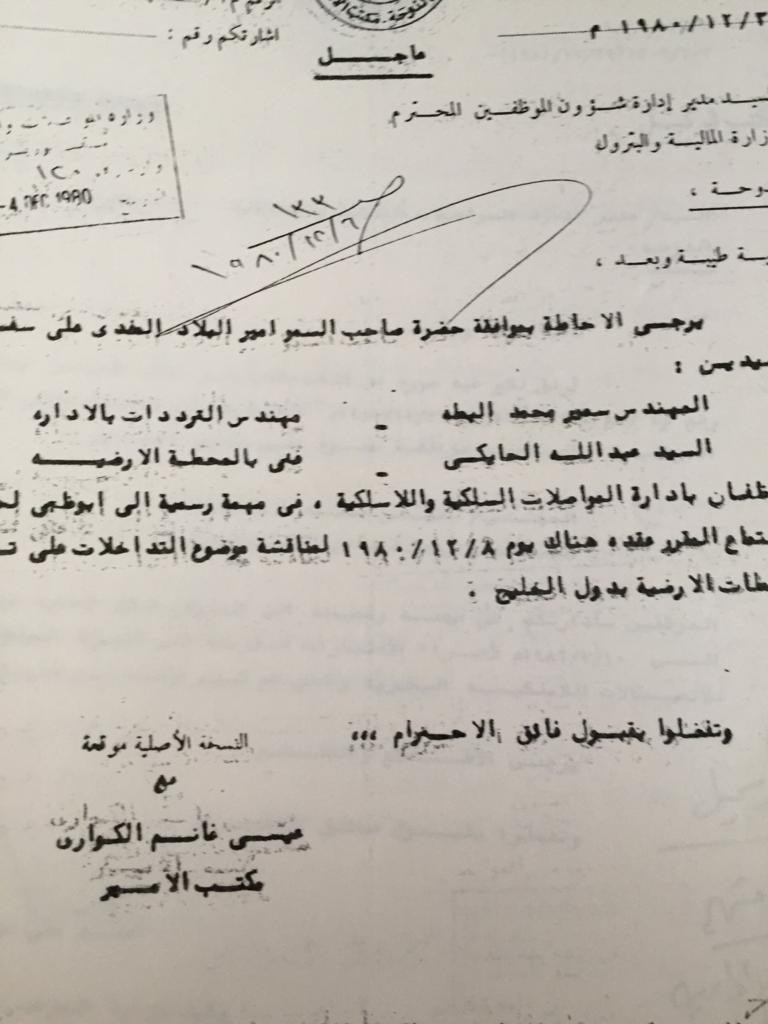 الدوحة - مكتب
اشارتكم رقم :
١٩٨٠/١٢/٣ م
عاجـــل
مدير إدارة شؤون الموظفين المحترم
المالية والبترول
وزارة
١٢٠
4 DEC 1980
١٣٣
١٩٨٠/١٢/٦
طيبة وبعد ،
يرجى الاحاطة بموافقة حضرة صاحب السمو امير البلاد المفدى على
المهندس سمير محمد البطه - مهندس الترددات بالاداره
السيد عبدالله الحايكى - فنى بالمحطة الارضيه
بادارة المواصلات السلكية واللاسلكية ، فى مهمة رسمية الى ابوظبى
المقرر عقده هناك يوم ١٩٨٠/١٢/٨ لمناقشة موضوع التداخلات على
الارضية بدول الخليج .
وتفضلوا بقبول فائق الاحترام ،،،
النسخة الأصلية موقعة
عيسى غانم الكوارى
مكتب الامير